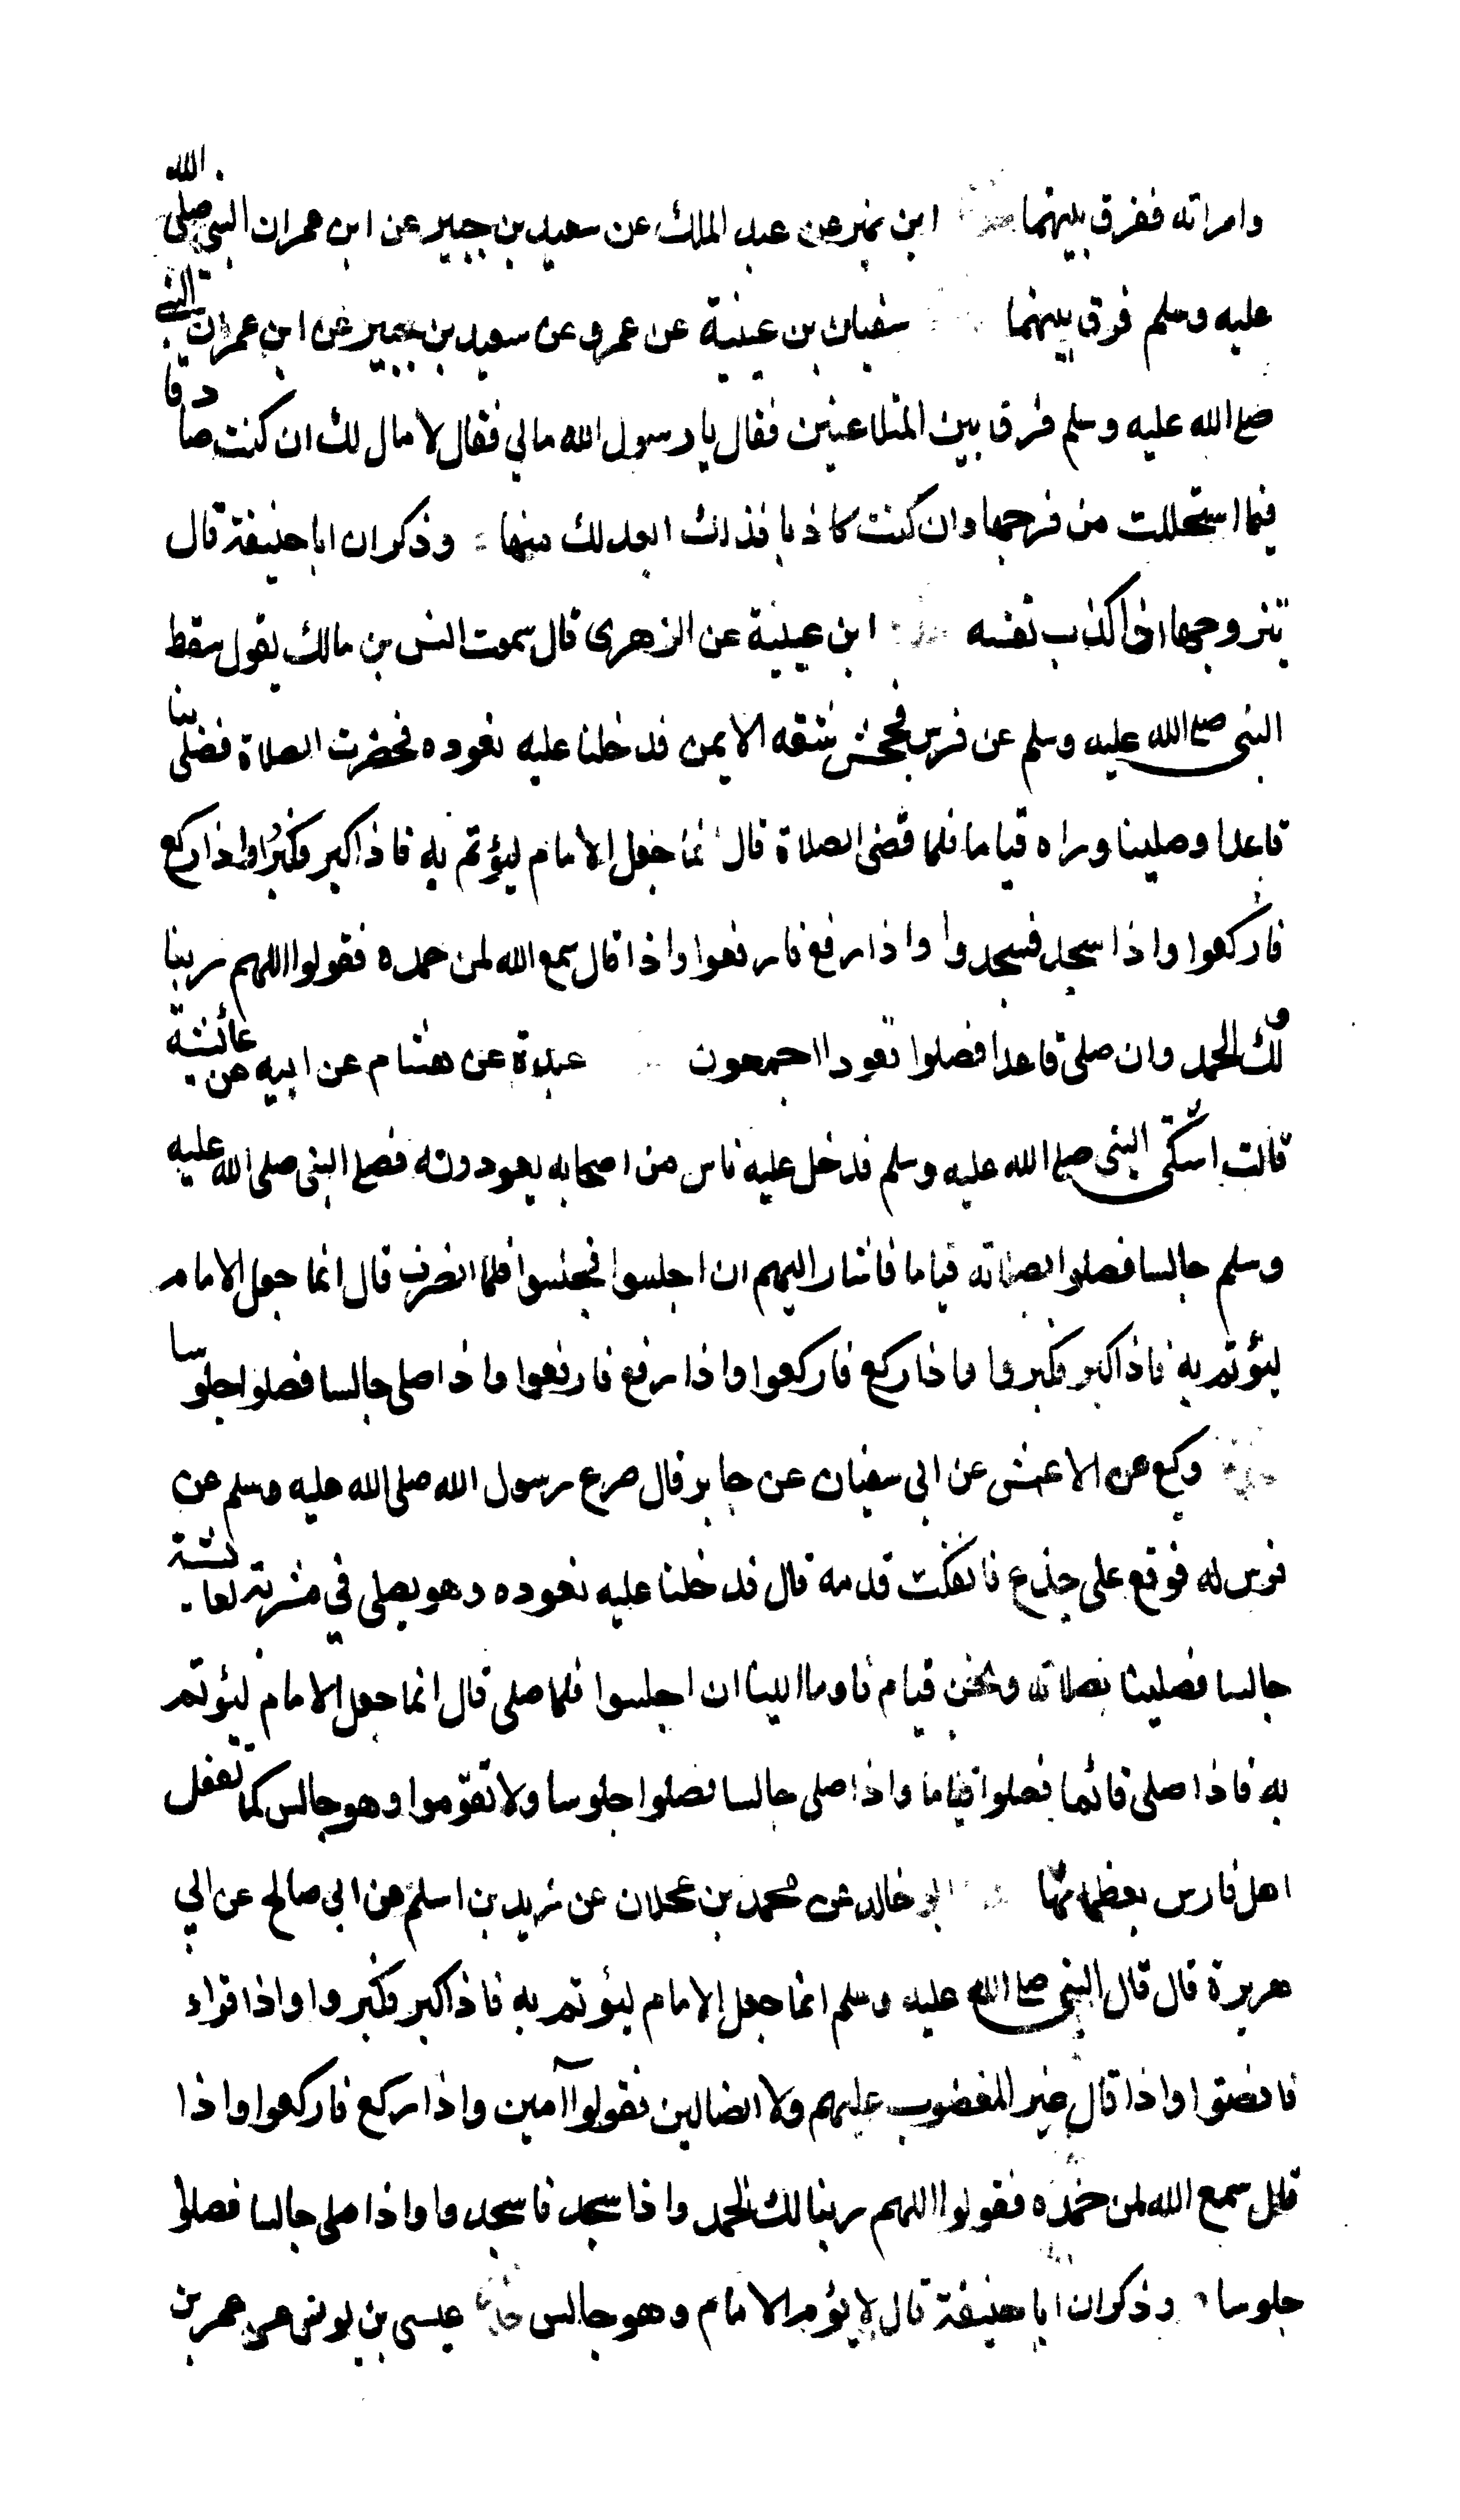 وامراته ففرق بينهما ابن نمير عن عبد الملك عن سعيد بن جبير عن ابن عمر ان النبي صلى الله
عليه وسلم فرق بينهما سفيان بن عيينة عن عمرو عن سعيد بن جبير عن ابن عمر ان النبي
صلى الله عليه وسلم فرق بين المتلاعنين فقال يا رسول الله مالي فقال لا مال لك ان كنت صادقا
فبما استحللت من فرجها وان كنت كاذبا فذلك ابعد لك منها وذكر ان ابا حنيفة قال
يتزوجها اذا اكذب نفسه ابن عيينة عن الزهرى قال سمعت انس بن مالك يقول سقط
النبى صلى الله عليه وسلم عن فرس فجحش شقه الايمن فدخلنا عليه نعوده فحضرت الصلاة فصلى بنا
قاعدا وصلينا وراه قياما فلما قضى الصلاة قال انما جعل الامام ليؤتم به فاذا كبر فكبروا واذا ركع
فاركعوا واذا سجد فسجدوا واذا رفع فارفعوا واذا قال سمع الله لمن حمده فقولوا اللهم ربنا
ولك الحمد وان صلى قاعدا فصلوا قعودا اجمعون عبدة عن هشام عن ابيه عن عائشة
قالت اشتكى النبى صلى الله عليه وسلم فدخل عليه ناس من اصحابه يعودونه فصلى النبى صلى الله عليه
وسلم جالسا فصلوا بصلاته قياما فاشار اليهم ان اجلسوا فجلسوا فلما انصرف قال انما جعل الامام
ليؤتم به فاذا كبر فكبروا واذا ركع فاركعوا واذا رفع فارفعوا واذا صلى جالسا فصلوا جلوسا
وكيع عن الاعمش عن ابى سفيان عن جابر قال صرع رسول الله صلى الله عليه وسلم عن
فرس له فوقع على جذع فانفكت قدمه قال فدخلنا عليه نعوده وهو يصلى في مشربة لعائشة
جالسا فصلينا بصلاته ونحن قيام فاوما الينا ان اجلسوا فلما صلى قال انما جعل الامام ليؤتم
به فاذا صلى قائما فصلوا قياما واذا صلى جالسا فصلوا جلوسا ولا تقوموا وهو جالس كما تفعل
اهل فارس بعظمائها ابو خالد عن محمد بن عجلان عن زيد بن اسلم عن ابى صالح عن ابي
هريرة قال قال النبى صلى الله عليه وسلم انما جعل الامام ليؤتم به فاذا كبر فكبروا واذا قراء
فانصتوا واذا قال غير المغضوب عليهم ولا الضالين فقولوا آمين واذا ركع فاركعوا واذا
قال سمع الله لمن حمده فقولوا اللهم ربنا لك الحمد واذا سجد فاسجدوا واذا صلى جالسا فصلوا
جلوسا وذكر ان ابا حنيفة قال لا يؤم الامام وهو جالس عيسى بن يونس عن عمر بن